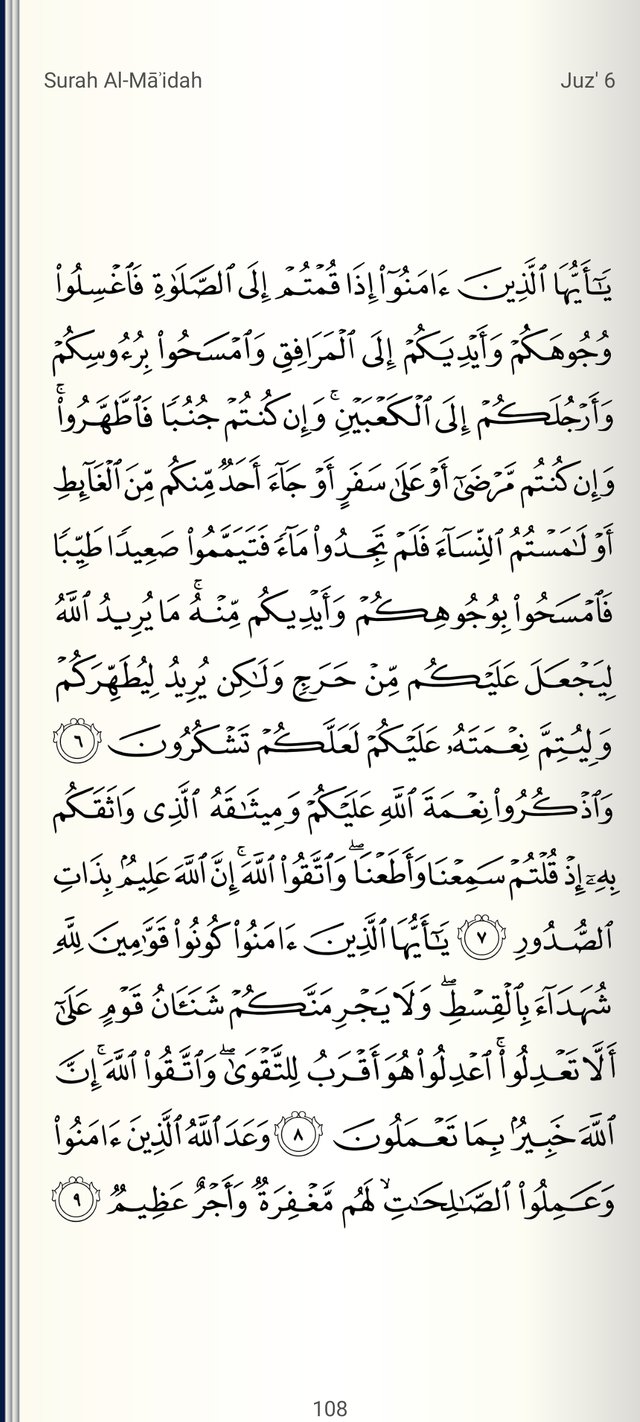 Surah Al-Māʾidah
Juz' 6
يَـٰٓأَيُّهَا ٱلَّذِينَ ءَامَنُوٓا۟ إِذَا قُمْتُمْ إِلَى ٱلصَّلَوٰةِ فَٱغْسِلُوا۟
وُجُوهَكُمْ وَأَيْدِيَكُمْ إِلَى ٱلْمَرَافِقِ وَٱمْسَحُوا۟ بِرُءُوسِكُمْ
وَأَرْجُلَكُمْ إِلَى ٱلْكَعْبَيْنِ ۚ وَإِن كُنتُمْ جُنُبًا فَٱطَّهَّرُوا۟ ۚ
وَإِن كُنتُم مَّرْضَىٰٓ أَوْ عَلَىٰ سَفَرٍ أَوْ جَآءَ أَحَدٌ مِّنكُم مِّنَ ٱلْغَآئِطِ
أَوْ لَـٰمَسْتُمُ ٱلنِّسَآءَ فَلَمْ تَجِدُوا۟ مَآءً فَتَيَمَّمُوا۟ صَعِيدًا طَيِّبًا
فَٱمْسَحُوا۟ بِوُجُوهِكُمْ وَأَيْدِيكُم مِّنْهُ ۚ مَا يُرِيدُ ٱللَّهُ
لِيَجْعَلَ عَلَيْكُم مِّنْ حَرَجٍ وَلَـٰكِن يُرِيدُ لِيُطَهِّرَكُمْ
وَلِيُتِمَّ نِعْمَتَهُۥ عَلَيْكُمْ لَعَلَّكُمْ تَشْكُرُونَ ٦
وَٱذْكُرُوا۟ نِعْمَةَ ٱللَّهِ عَلَيْكُمْ وَمِيثَـٰقَهُ ٱلَّذِى وَاثَقَكُم
بِهِۦٓ إِذْ قُلْتُمْ سَمِعْنَا وَأَطَعْنَا ۖ وَٱتَّقُوا۟ ٱللَّهَ ۚ إِنَّ ٱللَّهَ عَلِيمٌۢ بِذَاتِ
ٱلصُّدُورِ ٧ يَـٰٓأَيُّهَا ٱلَّذِينَ ءَامَنُوا۟ كُونُوا۟ قَوَّٰمِينَ لِلَّهِ
شُهَدَآءَ بِٱلْقِسْطِ ۖ وَلَا يَجْرِمَنَّكُمْ شَنَـَٔانُ قَوْمٍ عَلَىٰٓ
أَلَّا تَعْدِلُوا۟ ۚ ٱعْدِلُوا۟ هُوَ أَقْرَبُ لِلتَّقْوَىٰ ۖ وَٱتَّقُوا۟ ٱللَّهَ ۚ إِنَّ
ٱللَّهَ خَبِيرٌۢ بِمَا تَعْمَلُونَ ٨ وَعَدَ ٱللَّهُ ٱلَّذِينَ ءَامَنُوا۟
وَعَمِلُوا۟ ٱلصَّـٰلِحَـٰتِ ۙ لَهُم مَّغْفِرَةٌ وَأَجْرٌ عَظِيمٌ ٩
108